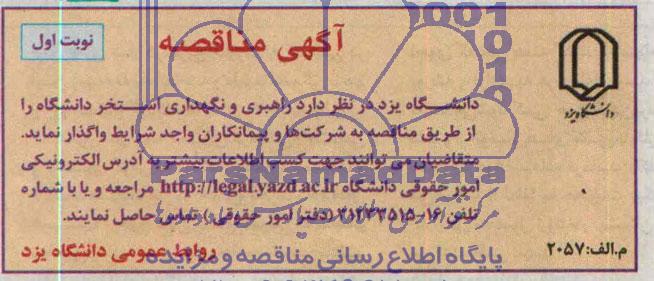 آگهی مناقصه
نوبت اول
دانشگاه یزد
دانشگاه یزد در نظر دارد راهبری و نگهداری استخر دانشگاه را
از طریق مناقصه به شرکت‌ها و پیمانکاران واجد شرایط واگذار نماید.
متقاضیان می توانند جهت کسب اطلاعات بیشتر به آدرس الکترونیکی
امور حقوقی دانشگاه http://legal.yazd.ac.ir مراجعه و یا با شماره
تلفن ۱۶-۳۱۲۳۳۵۱۵ (دفتر امور حقوقی) تماس حاصل نمایند.
م.الف: ۲۰۵۷
روابط عمومی دانشگاه یزد
ParsNamadData
پایگاه اطلاع رسانی مناقصه و مزایده